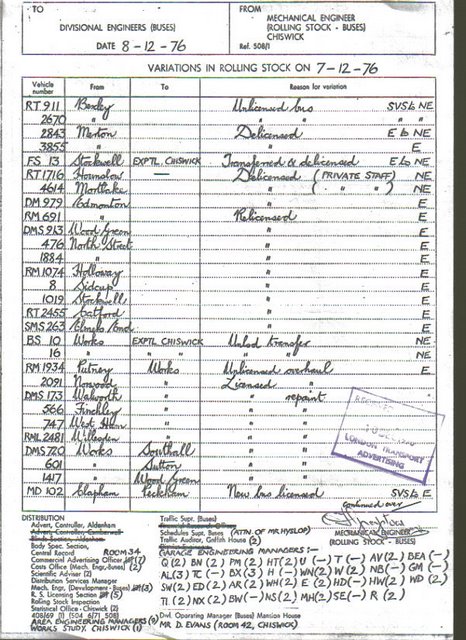 TO
DIVISIONAL ENGINEERS (BUSES)
DATE 8-12-76
FROM
MECHANICAL ENGINEER
(ROLLING STOCK - BUSES)
CHISWICK
Ref. 508/1
VARIATIONS IN ROLLING STOCK ON 7-12-76
Vehicle number From To Reason for variation
RT 911 Bexley Unlicensed bus SVSb NE
2670 " " " "
2843 Merton Delicensed E b NE
3855 " " E
FS 13 Stockwell EXPTL. CHISWICK Transferred & delicensed E b NE
RT 1716 Hounslow — Delicensed (PRIVATE STAFF) NE
4614 Mortlake " ( " " ) NE
DM 979 Edmonton " E
RM 691 " Relicensed E
DMS 913 Wood Green " E
476 North Street " E
1884 " " E
RM 1074 Holloway " E
8 Sidcup " E
1019 Stockwell " E
RT 2455 Catford " E
SMS 263 Elmers End " E
BS 10 Works EXPTL CHISWICK Unlsd transfer NE
16 " " " " " NE
RM 1934 Putney Works Unlicensed overhaul E
2091 Norwood Licensed "
DMS 173 Walworth " repaint
566 Finchley " "
747 West Ham " "
RML 2481 Willesden " "
DMS 720 Works Southall " "
601 " Sutton " "
1417 " Wood Green " "
MD 102 Clapham Peckham New bus licensed SVSb E
RECEIVED
LONDON TRANSPORT
ADVERTISING
Continued over
MECHANICAL ENGINEER
(ROLLING STOCK - BUSES)
DISTRIBUTION
Advert. Controller, Aldenham
Body Spec. Section,
Central Record ROOM 34
Commercial Advertising Officer
Costs Office (Mech. Engr.-Buses) (2)
Scientific Adviser (2)
Distribution Services Manager
Mech. Engr. (Development - Buses)
R. S. Licensing Section (5)
Rolling Stock Inspection
Statistical Office - Chiswick (2)
AREA ENGINEERING MANAGERS (9)
WORKS STUDY, CHISWICK (1)
Traffic Supt. (Buses)
Schedules Supt. Buses (ATTN. OF MR HYSLOP)
Traffic Auditor, Griffith House (2)
GARAGE ENGINEERING MANAGERS :-
Q (2) BN (2) PM (2) HT (2) U (-) T (-) AV (2) BEA (-)
AL (3) TC (-) BX (3) H (-) WN (2) W (2) NB (-) GM (-)
SW (2) ED (2) AR (2) WH (2) E (2) HD (-) HW (2) WD (2)
TL (2) NX (2) BW (-) NS (2) MH (2) SE (-) R (2)
Divl. Operating Manager (Buses) Mansion House
MR D. EVANS (ROOM 42, CHISWICK)